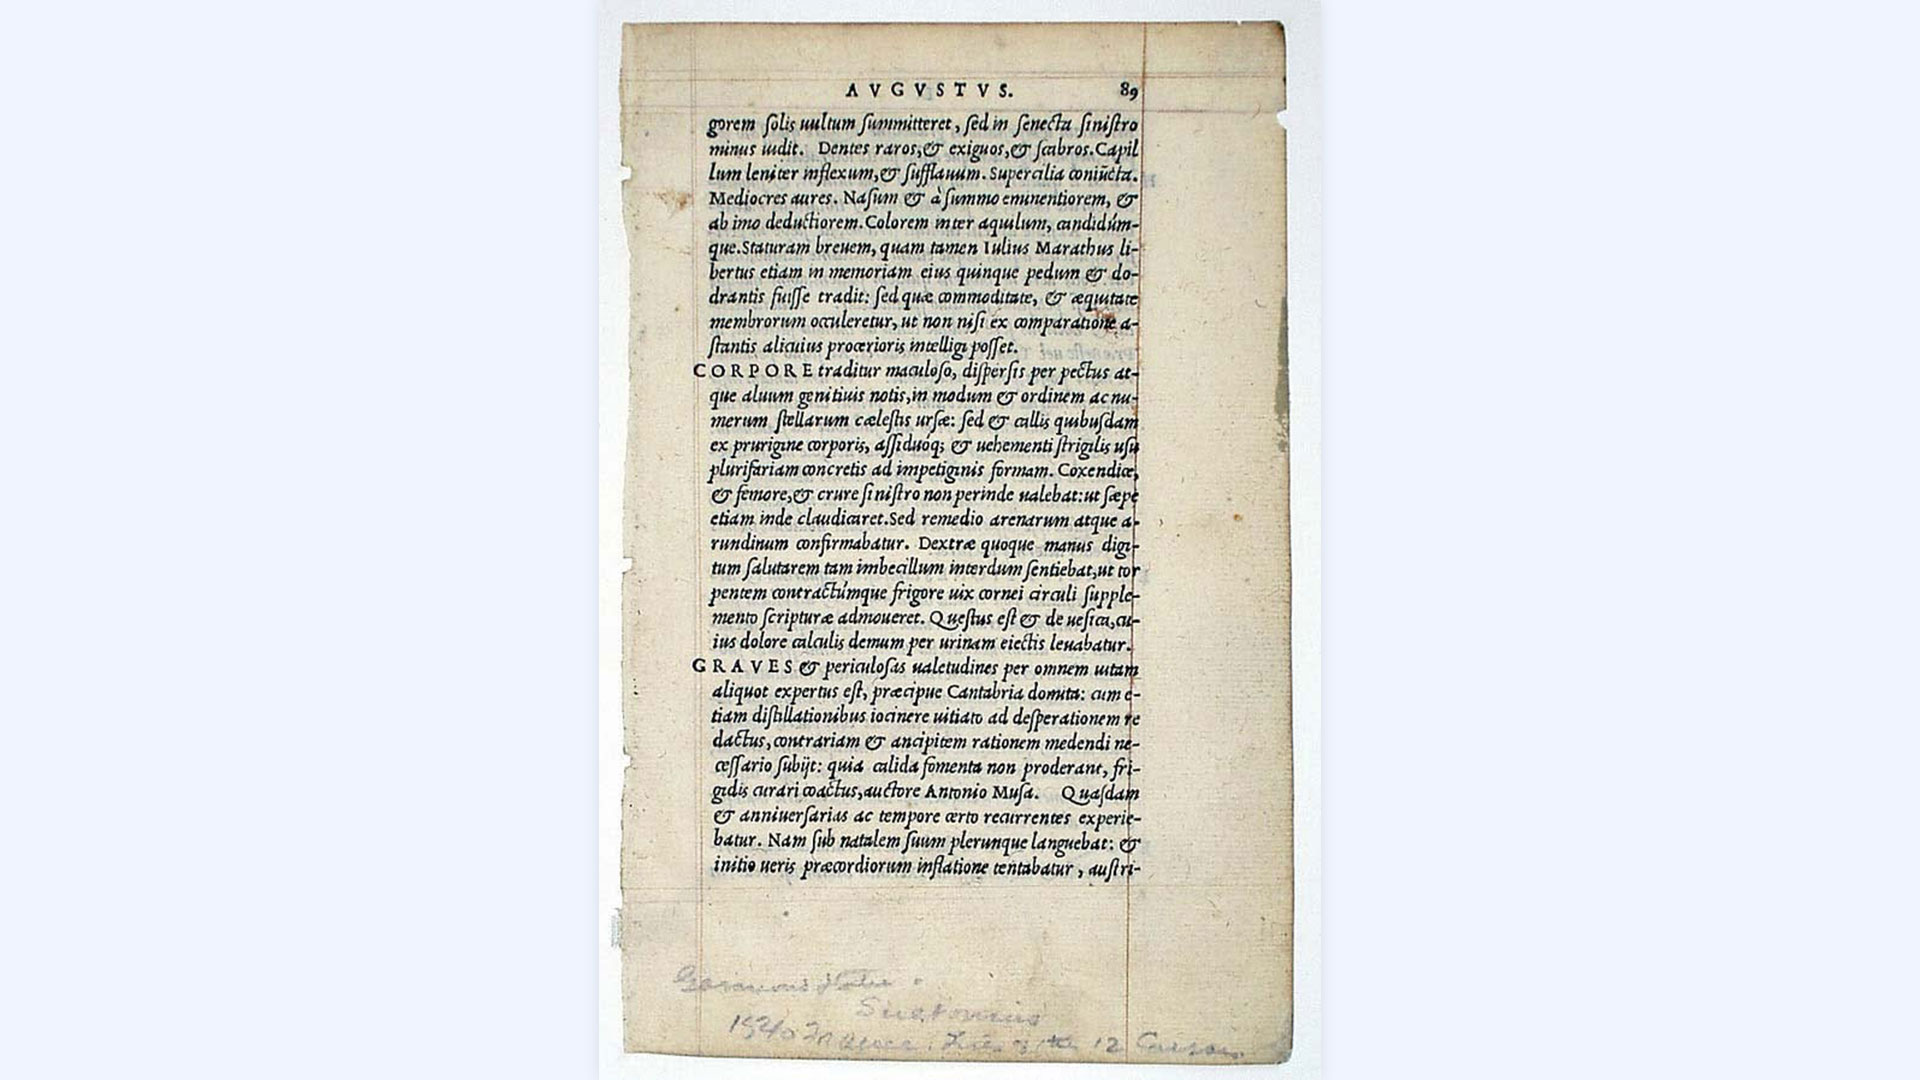 AVGVSTVS. 89
gorem solis uultum summitteret, sed in senecta sinistro
minus uidit. Dentes raros,& exiguos,& scabros. Capil
lum leniter inflexum,& sufflauum. Supercilia coniũcta.
Mediocres aures. Nasum & à summo eminentiorem, &
ab imo deductiorem. Colorem inter aquilum, candidúm-
que. Staturam breuem, quam tamen Iulius Marathus li-
bertus etiam in memoriam eius quinque pedum & do-
drantis fuisse tradit: sed quæ commoditate, & æquitate
membrorum occuleretur, ut non nisi ex comparatione a-
stantis alicuius procerioris intelligi posset.
CORPORE traditur maculoso, dispersis per pectus at-
que aluum genitiuis notis, in modum & ordinem ac nu-
merum stellarum cælestis ursæ: sed & callis quibusdam
ex prurigine corporis, assiduóq; & uehementi strigilis usu
plurifariam concretis ad impetiginis formam. Coxendice,
& femore,& crure sinistro non perinde ualebat: ut sæpe
etiam inde claudicaret. Sed remedio arenarum atque a-
rundinum confirmabatur. Dextræ quoque manus digi-
tum salutarem tam imbecillum interdum sentiebat, ut tor
pentem contractúmque frigore uix cornei circuli supple-
mento scripturæ admoueret. Questus est & de uesica, cu-
ius dolore calculis demum per urinam eiectis leuabatur.
GRAVES & periculosas ualetudines per omnem uitam
aliquot expertus est, præcipue Cantabria domita: cum e-
tiam distillationibus iocinere uitiato ad desperationem re
dactus, contrariam & ancipitem rationem medendi ne-
cessario subijt: quia calida fomenta non proderant, fri-
gidis curari coactus, auctore Antonio Musa. Quasdam
& anniuersarias ac tempore certo recurrentes experie-
batur. Nam sub natalem suum plerunque languebat: &
initio ueris præcordiorum inflatione tentabatur, austri-
Suetonius
1540 12